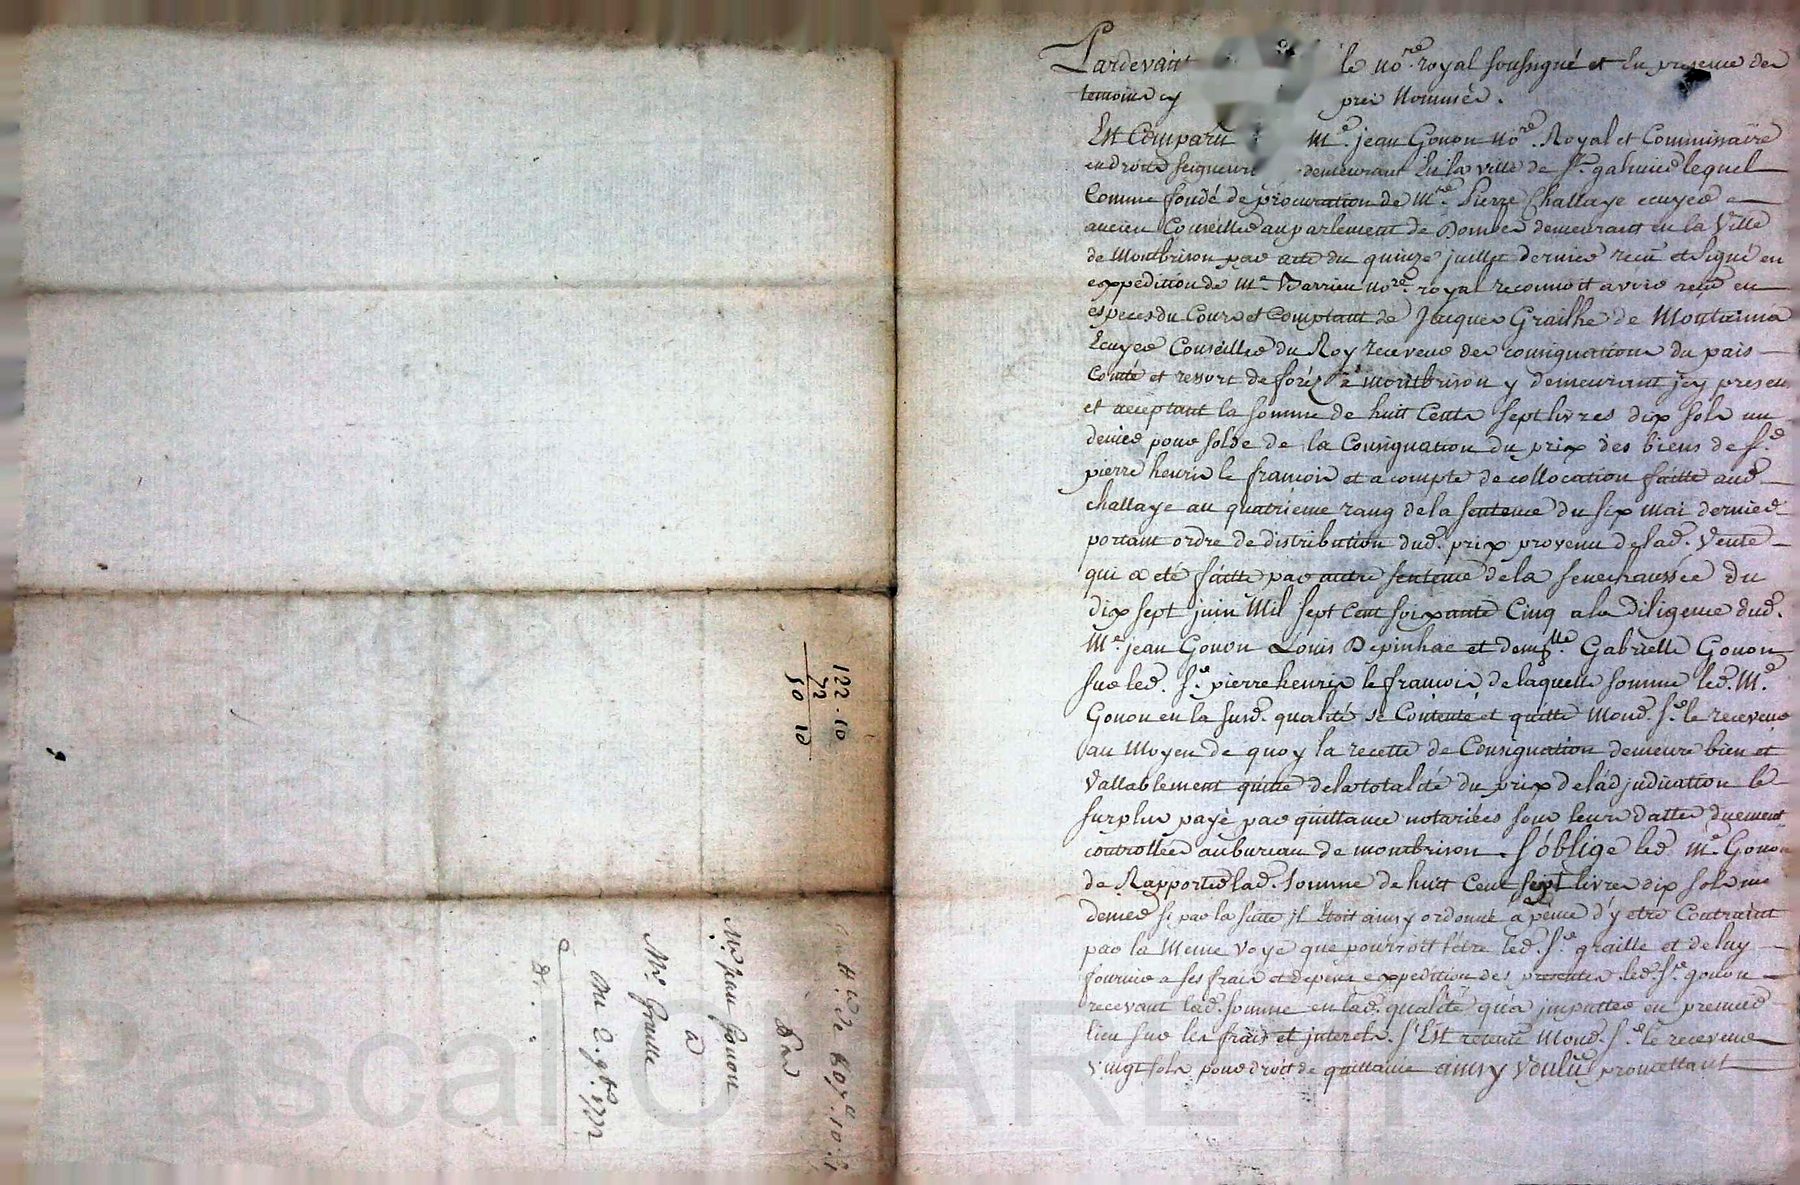 Pardevant le no.re royal soussigné et en presence des
temoins cy pres nommés.
Est Comparu M.e jean Gonon no.re Royal et Commissaire
en droits seigneur demeurant En la ville de S.t galmier lequel
Comme fondé de procuration de M.re Pierre Challaye ecuyer
ancien Conseiller au parlement de Dombes demeurant en la Ville
de Montbrison par acte du quinze juillet dernier recu et signé en
expedition de M.e no.re royal reconnoit avoir recu en
especes du Cours et Comptant de Jacques Grailhe de Montaima
Ecuyer Conseiller du Roy receveur des consignations du pais
Comté et ressort de forés a montbrison y demeurant jcy presen
et acceptant la somme de huit Cents sept livres dix sols un
denier pour solde de la Consignation du prix des biens de S.r
pierre henris le francois et a compte de collocation faitte aud.
challaye au quatrieme rang de la sentence du six mai dernier
portant ordre de distribution dud. prix provenu de lad. Vente
qui a eté faitte par autre sentence de la senechaussée du
dix sept juin Mil sept Cent soixante Cinq a la diligence dud.
M.e jean Gonon Louis Depinhac et dem.lle Gabrielle Gonon
sur led. S.r pierre henris le francois de laquelle somme led. M.e
Gonon en la susd. qualité se Contente et quitte Mond. S.r le receveur
au Moyen de quoy la recette de Consignation demeure bien et
Vallablement quitte de la totalité du prix de l'adjudication le
surplus payé par quittance notariées sous leurs dattes duement
controllées au bureau de montbrison. S'oblige led. M.e Gonon
de Rapporter lad. Somme de huit Cent sept livres dix sols un
denier si par la suitte jl Etoit ainsy ordonné a peine d'y etre Contraint
par la Meme Voye que pourroit l'etre led. S.r graille et de luy
fournir a ses frais et depens expedition des presentes led. S.r gonon
recevant lad. somme en lad. qualité qu'a jmputter en premier
lieu sur les frais et jnterets. S'Est retenu Mond. S.r le receveur
Vingt sols pour droit de quittance ainsy Voulu promettant
122 . 10
72
50 10
807.# 10.s
Par
M.e jean Gonon
à
M.r Graille
Du 2. 9.bre 1772
Pascal CHARETTON